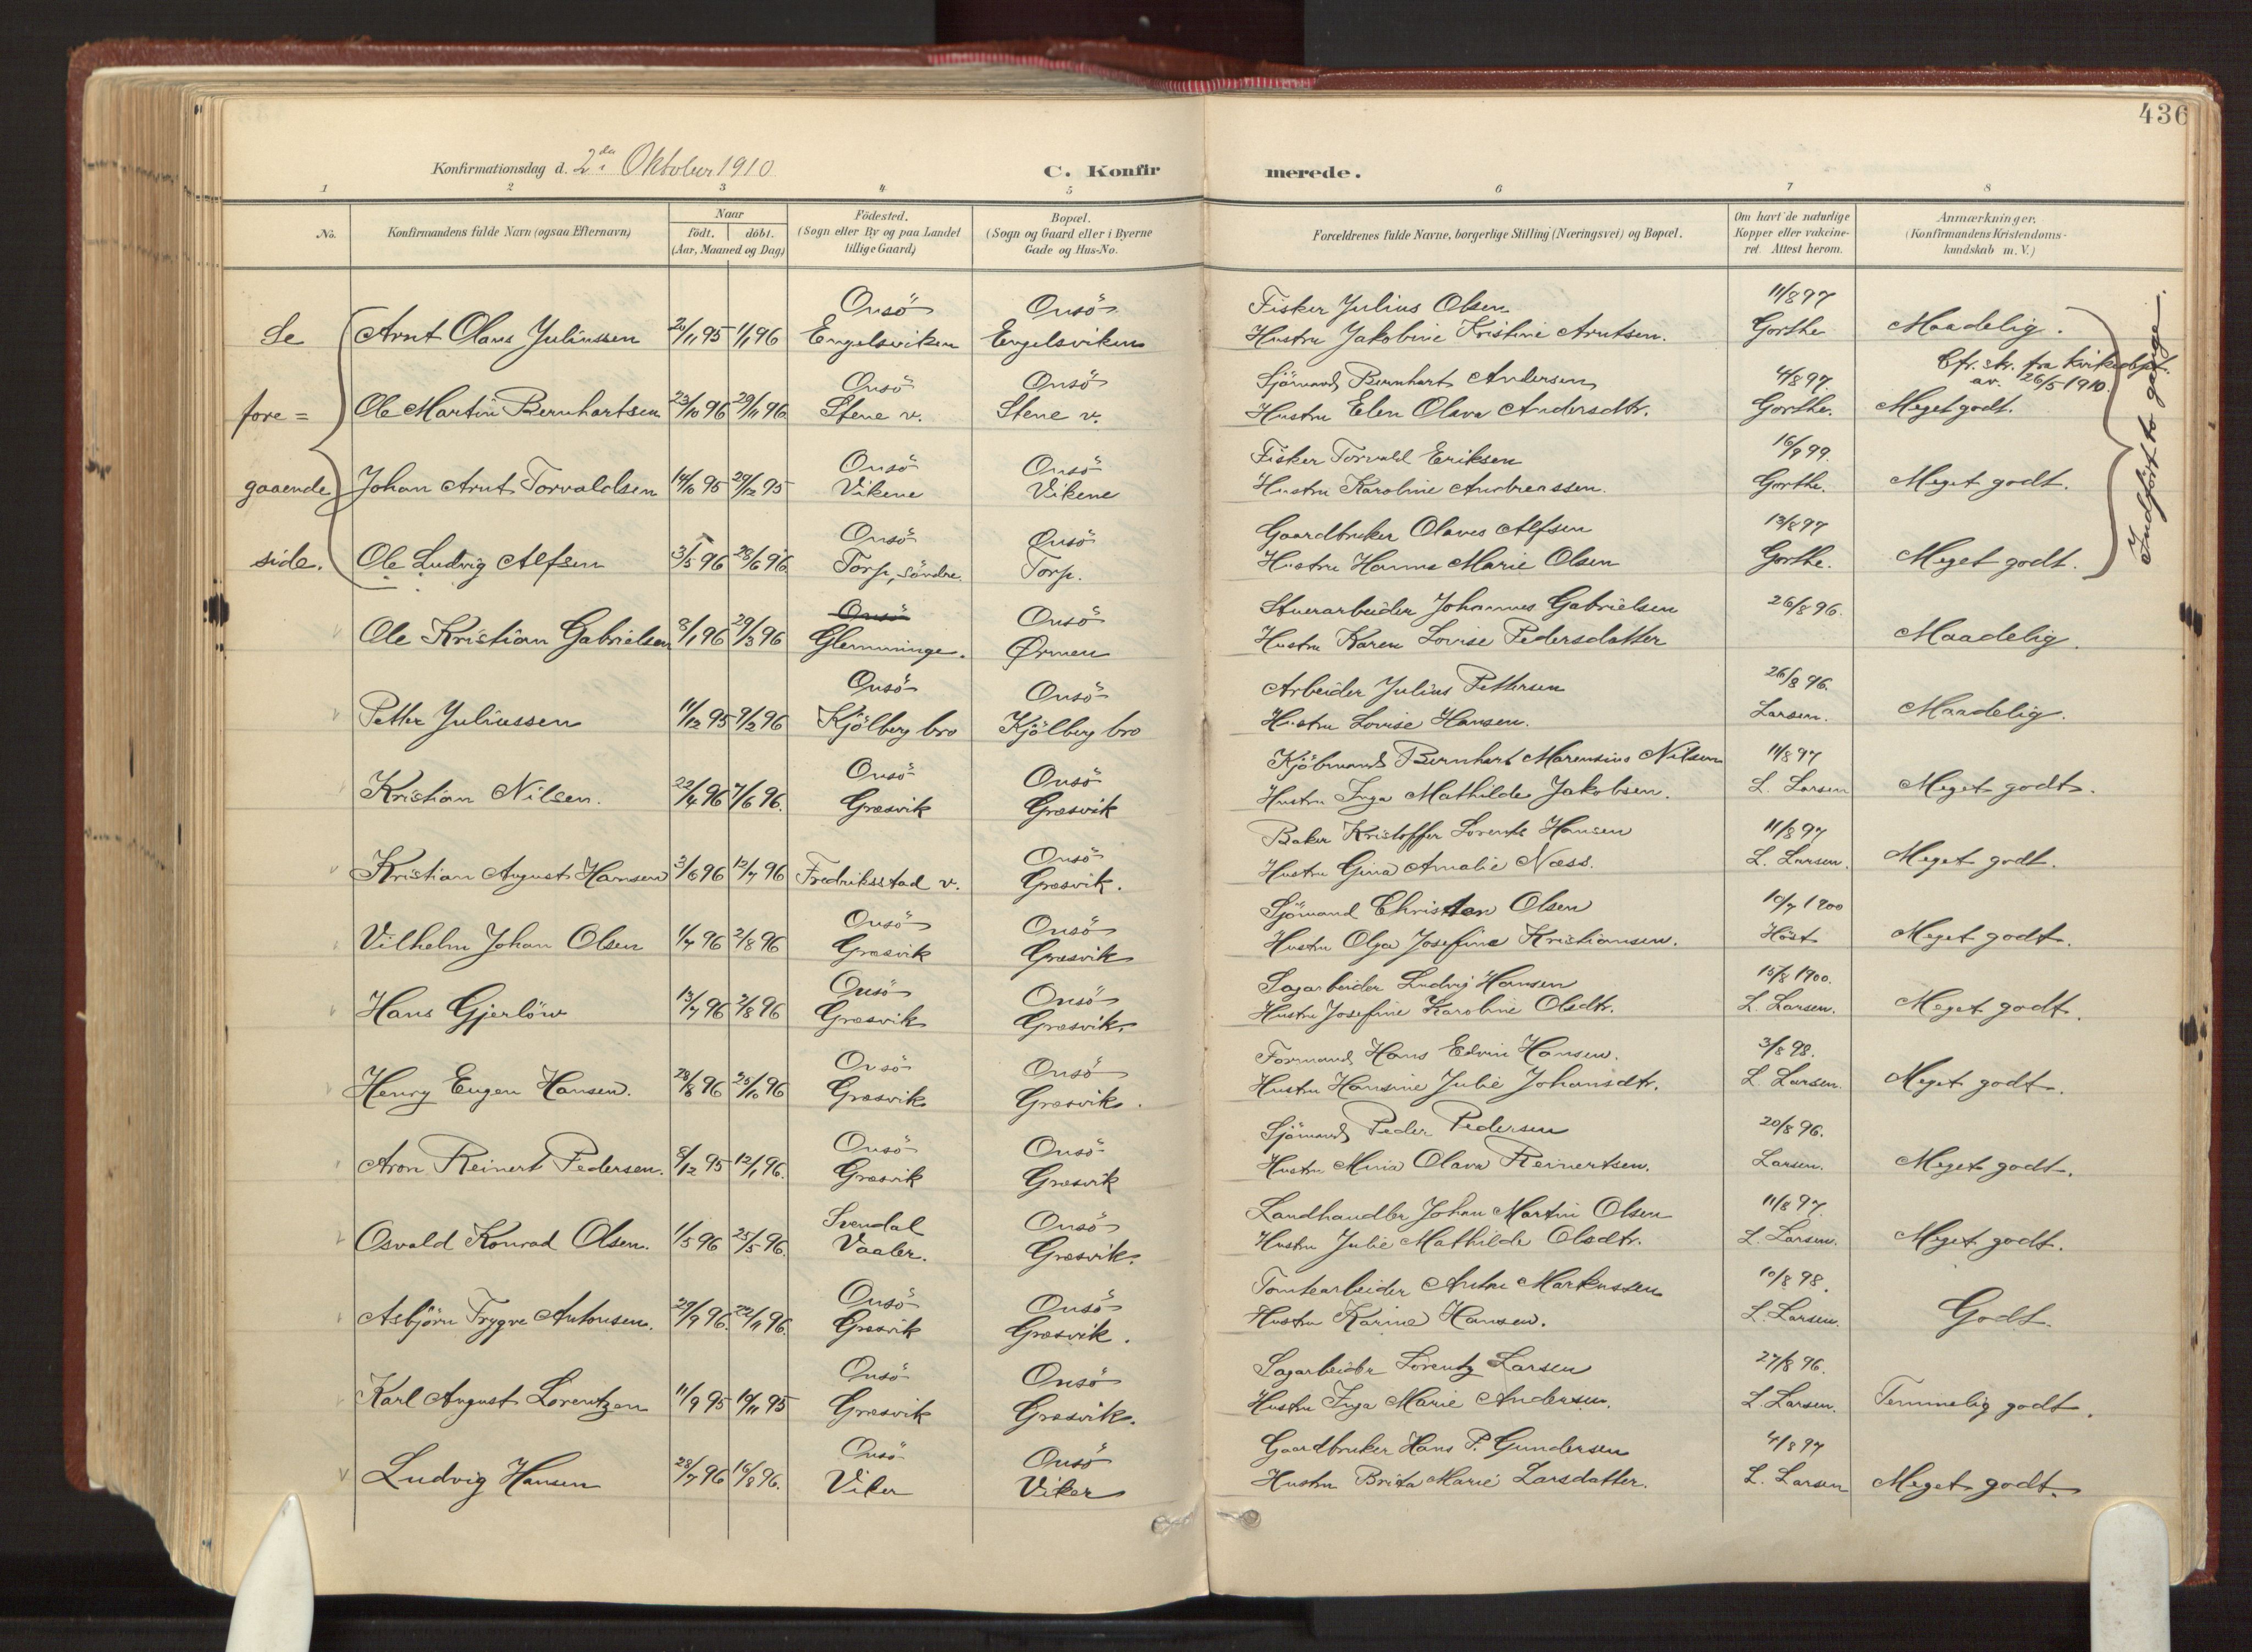 436
Konfirmationsdag d. 2den Oktober 1910
C. Konfirmerede.
1 2 3 4 5 6 7 8
No.
Konfirmandens fulde Navn (ogsaa Efternavn)
Naar
födt. döbt.
(Aar, Maaned og Dag)
Födested.
(Sogn eller By og paa Landet
tillige Gaard)
Bopæl.
(Sogn og Gaard eller i Byerne
Gade og Hus-No.
Forældrenes fulde Navne, borgerlige Stilling (Næringsvei) og Bopæl.
Om havt de naturlige
Kopper eller vakcine-
ret. Attest herom.
Anmærkninger,
(Konfirmandens Kristendoms-
kundskab m. V.)
Onsö Onsö Fisker Julius Olsen 11/8 97
Se Arnt Olaus Juliussen 20/11 95 1/1 96 Engelsviken Engelsviken Hustru Jakobine Kristine Arntsen. Gorthe Maadelig.
Cfr. skr. fra kirkedept.
av. 26/5 1910.
Onsö Onsö Sjömand Bernhart Andersen 4/8 97.
fore= Ole Martin Bernhartsen 23/10 96 29/11 96 Stene v. Stene v. Hustru Elen Olava Andersdtr. Gorthe. Meget godt.
Onsö Onsö Fisker Torvald Eriksen 16/8 99.
gaaende Johan Arnt Torvaldsen 14/10 95 29/12 95 Vikene Vikene Hustru Karoline Andreassen. Gorthe. Meget godt.
Onsö Onsö Gaardbruker Olaves Alfsen 13/8 97
side. Ole Ludvig Alfsen 3/5 96 28/6 96. Torp, söndre. Torp. Hustru Hanna Marie Olsen Gorthe. Meget godt.
Indfört to gange.
Onsö Onsö Stuerarbeider Johannes Gabrielsen 26/8 96.
Ole Kristian Gabrielsen 8/1 96 29/3 96 Glemminge. Ørmen Hustru Karen Lovise Pedersdatter Maadelig.
Onsö Onsö Arbeider Julius Pettersen 26/8 96.
Petter Juliussen 11/12 95 9/2 96 Kjölberg bro Kjölberg bro Hustru Lovise Hansen. Larsen. Maadelig.
Onsö Onsö Kjöbmand Bernhart Marensius Nilsen 11/8 97
Kristian Nilsen. 22/4 96 7/6 96. Græsvik Græsvik Hustru Inga Mathilde Jakobsen. L. Larsen Meget godt.
Onsö Baker Kristoffer Lorents Hansen 11/8 97
Kristian August Hansen 3/6 96 12/7 96 Fredriksstad v. Græsvik. Hustru Gina Amalie Næss. L. Larsen. Meget godt.
Onsö Onsö Sjömand Christian Olsen 10/7 1900
Vilhelm Johan Olsen 1/7 96 2/8 96 Græsvik Græsvik Hustru Olga Josefine Kristiansen. Höst Meget godt.
Onsö Onsö Sagarbeider Ludvig Hansen 15/8 1900.
Hans Gjerlöw 13/7 96 2/8 96 Græsvik Græsvik. Hustru Josefine Karoline Olsdtr. L. Larsen. Meget godt.
Onsö Onsö Formand Hans Edvin Hansen. 3/8 98.
Henry Eugen Hansen. 28/8 96 25/10 96 Græsvik Græsvik. Hustru Hansine Julie Johansdtr. L. Larsen. Meget godt.
Onsö Onsö Sjömand Peder Pedersen 20/8 96.
Aron Reinert Pedersen. 8/12 95 12/1 96. Græsvik Græsvik Hustru Mina Olava Reinertsen. Larsen. Meget godt.
Svendal Onsö Landhandler Johan Martin Olsen 11/8 97.
Osvald Konrad Olsen. 1/5 96 25/5 96. Vaaler. Græsvik. Hustru Julie Mathilde Olsdtr. L. Larsen. Meget godt.
Onsö Onsö Tomtearbeider Anton Markussen 10/8 98.
Asbjörn Trygve Antonsen. 29/9 96. 22/11 96. Græsvik Græsvik. Hustru Karine Hansen. L. Larsen. Godt.
Onsö Onsö Sagarbeider Lorentz Larsen 27/8 96.
Karl August Lorentzen 11/9 95 10/11 95 Græsvik Græsvik. Hustru Inga Marie Andersen. L. Larsen. Temmelig godt.
Onsö Onsö Gaardbruker Hans P. Gundersen 4/8 97
Ludvig Hansen 28/7 96 16/8 96. Viker Viker Hustru Brita Marie Larsdatter. L. Larsen Meget godt.